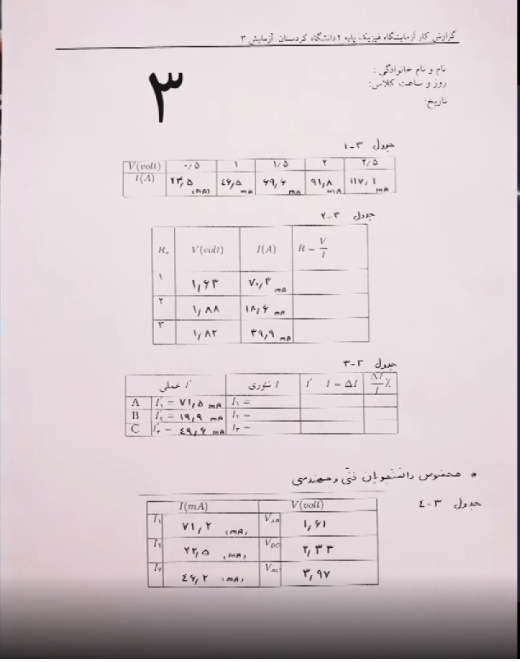 گزارش کار آزمایشگاه فیزیک پایه ۲ دانشگاه کردستان آزمایش ۳
نام و نام خانوادگی :
روز و ساعت کلاس:
تاریخ:
۳
جدول ۳-۱
V(volt) ۰/۵ ۱ ۱/۵ ۲ ۲/۵
I(A) ۲۳,۵ (mA) ٤۶,۵ mA ۶۹,۶ mA ۹۱,۸ mA ۱۱۷,۱ mA
جدول ۳-۲
V(volt) I(A) R = V/I
۱ ۱,۶۳ ۷۰,۳ mA
۲ ۱,۸۸ ۱۸,۶ mA
۳ ۱,۸۲ ۳۹,۹ mA
جدول ۳-۳
I' عملی I تئوری I' I = ΔI ΔI/I ٪
A I'₁ = ۷۱,۵ mA I₁ =
B I'₂ = ۱۹,۹ mA I₂ =
C I'₃ = ٤۹,۶ mA I₃ =
* مخصوص دانشجویان فنی و مهندسی
جدول ۳-٤
I(mA) V(volt)
I₁ ۷۱,۲ (mA) V_AB ۱,۶۱
I₂ ۲۲,۵ (mA) V_DC ۲,۳۳
I₃ ٤۶,۲ (mA) V_AC ۳,۹۷